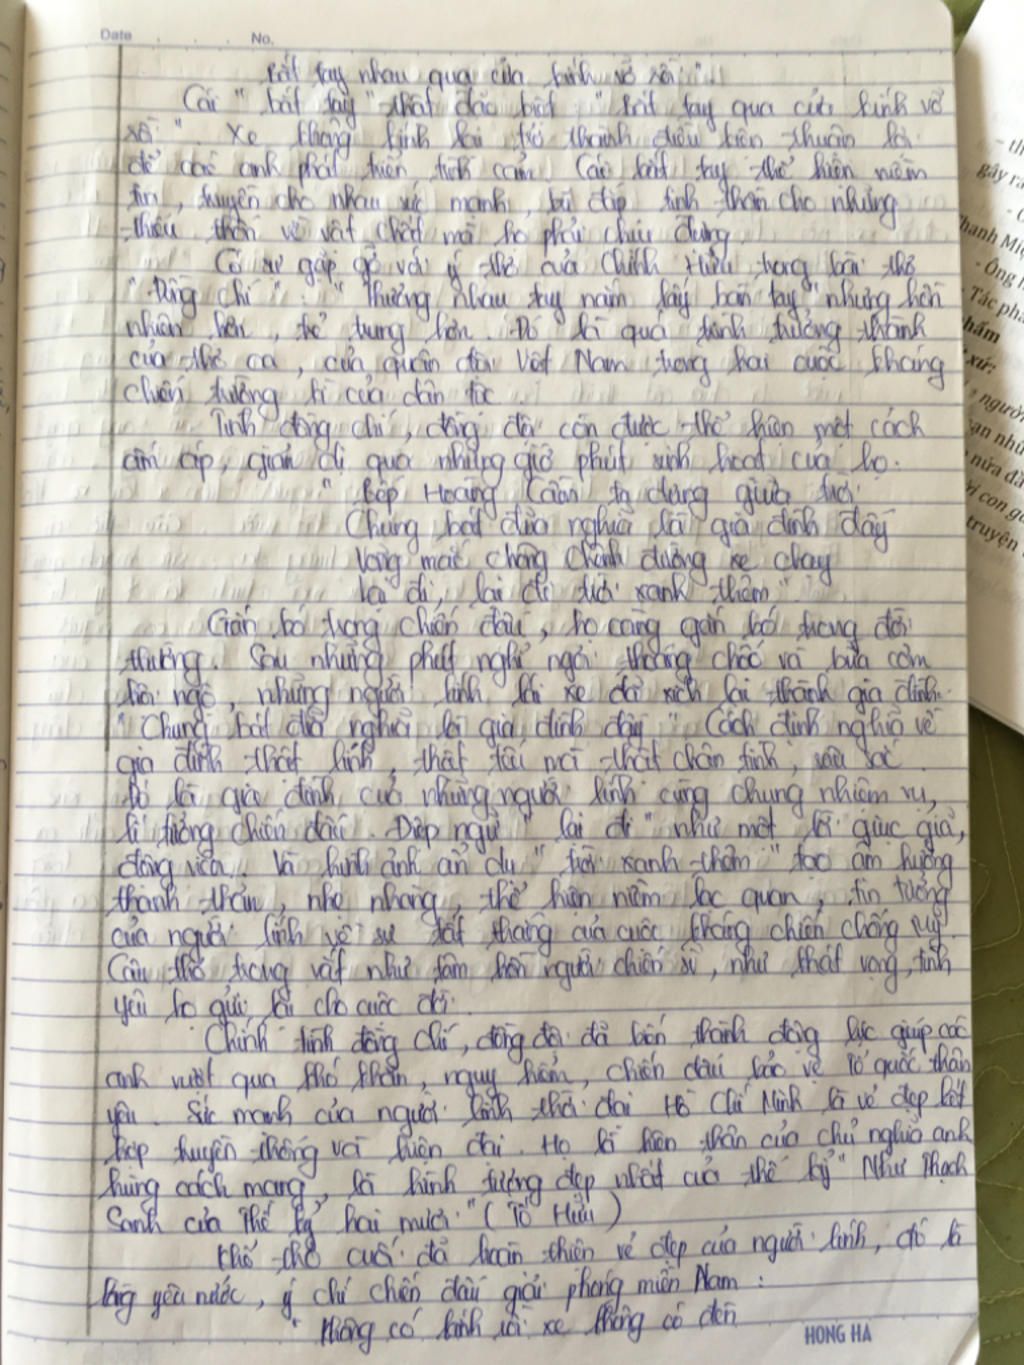 Date No.
Bắt tay nhau qua cửa kính vỡ rồi"
Cái "bắt tay" thật đặc biệt: "Bắt tay qua cửa kính vỡ
rồi". Xe không kính lại trở thành điều kiện thuận lợi
để các anh phát triển tình cảm. Cái bắt tay thể hiện niềm
tin, truyền cho nhau sức mạnh, bù đắp tinh thần cho những
thiếu thốn về vật chất mà họ phải chịu đựng.
Có sự gặp gỡ với ý thơ của Chính Hữu trong bài thơ
"Đồng chí": "Thương nhau tay nắm lấy bàn tay" nhưng hồn
nhiên hơn, trẻ trung hơn. Đó là quá trình trưởng thành
của thơ ca, của quân đội Việt Nam trong hai cuộc kháng
chiến trường kì của dân tộc.
Tình đồng chí, đồng đội còn được thể hiện một cách
ấm áp, giản dị qua những giờ phút sinh hoạt của họ.
"Bếp Hoàng Cầm ta dựng giữa trời
Chung bát đũa nghĩa là gia đình đấy
Võng mắc chông chênh đường xe chạy
Lại đi, lại đi trời xanh thêm"
Gắn bó trong chiến đấu, họ càng gắn bó trong đời
thường. Sau những phút nghỉ ngơi thoáng chốc và bữa cơm
hội ngộ, những người lính lái xe đã xích lại thành gia đình.
"Chung bát đũa nghĩa là gia đình đấy" Cách định nghĩa về
gia đình thật lính, thật tếu mà thật chân tình, sâu sắc.
Đó là gia đình của những người lính cùng chung nhiệm vụ,
lí tưởng chiến đấu. Điệp ngữ "lại đi" như một lời giục giã,
động viên. Và hình ảnh ẩn dụ "trời xanh thêm" tạo âm hưởng
thanh thản, nhẹ nhàng, thể hiện niềm lạc quan, tin tưởng
của người lính về sự tất thắng của cuộc kháng chiến chống Mỹ.
Câu thơ trong vắt như tâm hồn người chiến sĩ, như khát vọng, tình
yêu họ gửi lại cho cuộc đời.
Chính tình đồng chí, đồng đội đã biến thành động lực giúp các
anh vượt qua khó khăn, nguy hiểm, chiến đấu bảo vệ Tổ quốc thân
yêu. Sức mạnh của người lính thời đại Hồ Chí Minh là vẻ đẹp kết
hợp truyền thống với hiện đại. Họ là hiện thân của chủ nghĩa anh
hùng cách mạng, là hình tượng đẹp nhất của thế kỷ "Như Thạch
Sanh của thế kỷ hai mươi" (Tố Hữu)
Khổ thơ cuối đã hoàn thiện vẻ đẹp của người lính, đó là
lòng yêu nước, ý chí chiến đấu giải phóng miền Nam:
"Không có kính rồi xe không có đèn
HONG HA
gây ra
Thanh Mị
- Ông
Tác ph
xứ:
người
nửa đ
con g
truyện